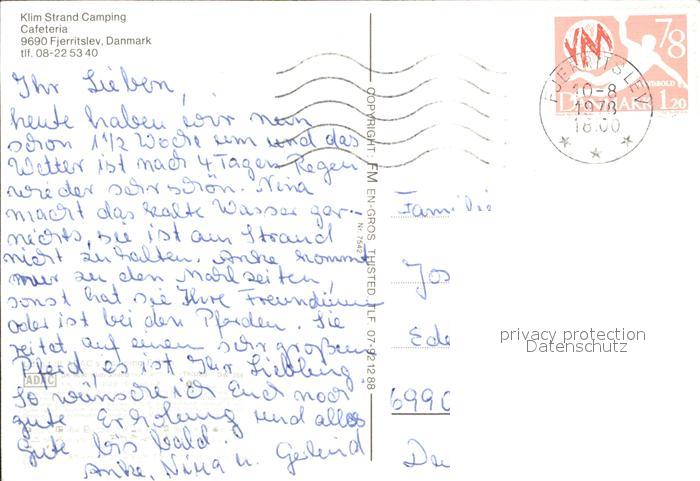 Klim Strand Camping
Cafeteria
9690 Fjerritslev, Danmark
tlf. 08-22 53 40
Ihr Lieben,
heute haben wir nun
schon 1 1/2 Woche um und das
Wetter ist nach 4 Tagen Regen
wieder sehr schön. Nina
macht das kalte Wasser gar-
nichts, sie ist am Strand
nicht zu halten. Anke kommt
nur zu den Mahlzeiten,
sonst hat sie Ihre Freundinnen
oder ist bei den Pferden. Sie
reitet auf einen sehr großen
Pferd, es ist Ihr Liebling.
So wünsche ich Euch noch
gute Erholung und alles
gute bis bald.
Anke, Nina u. Gerlind
COPYRIGHT: FM EN-GROS THISTED TLF 07-92 12 88
Nr. 7542
ADAC
VM
78
HÅNDBOLD
DANMARK 1.20
FJERRITSLEV
10-8
1978
18.00
Familie
Jos
Ede
6990
privacy protection
Datenschutz